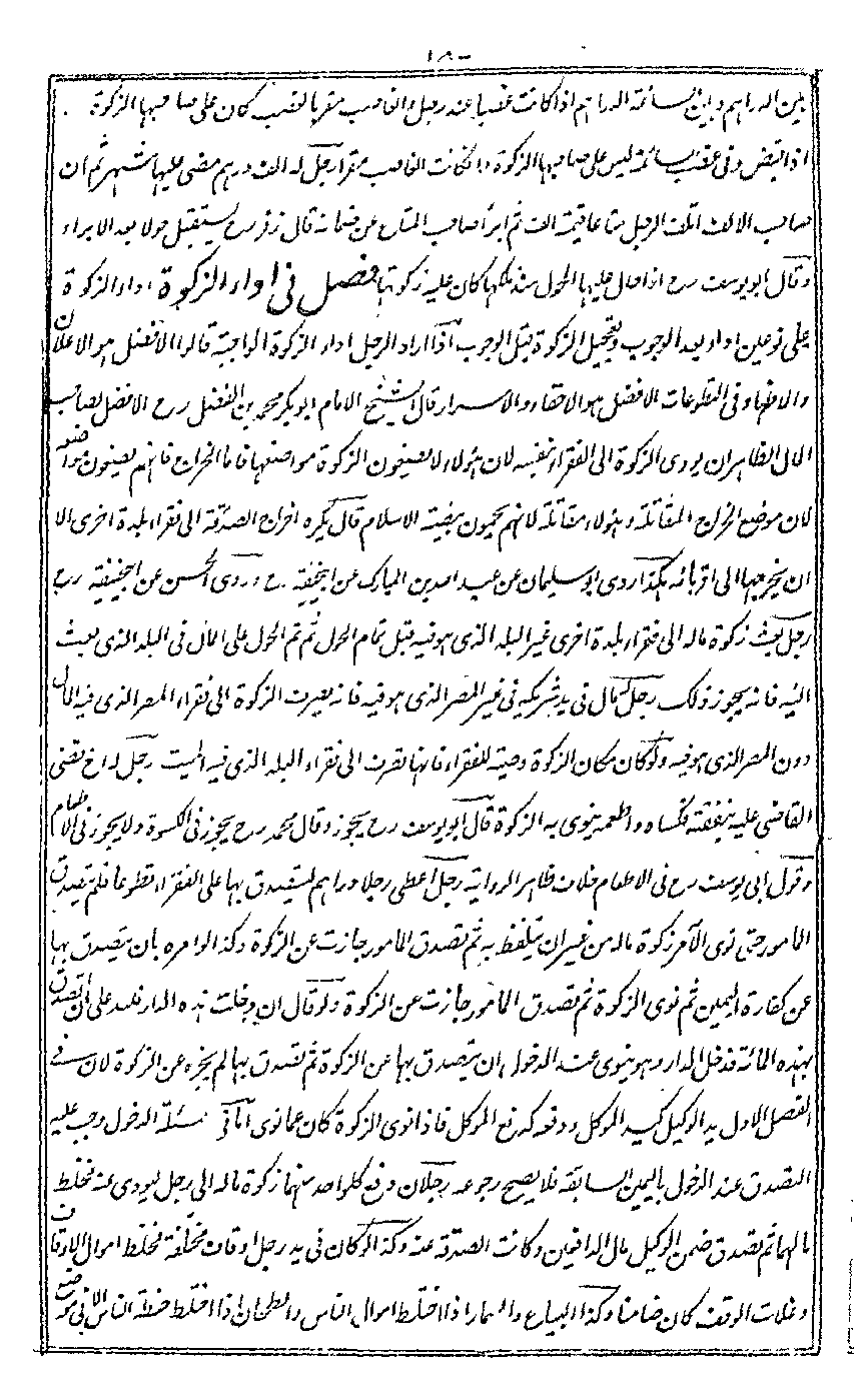 ١٨٠
بين الدراهم وبين السائمة الدراهم اذا كانت غصبا عند رجل والغاصب مقر بالغصب كان على صاحبها الزكوة
اذا قبض وفى غصب السائمة ليس على صاحبها الزكوة وان كانت الغاصب مقرا رجل له الف درهم مضى عليها شهر ثم ان
صاحب الالف اتلف لرجل متاعا قيمته الف ثم ابرأ صاحب المتاع عن ضمانه قال زفر رح يستقبل حولا بعد الابراء
وقال ابو يوسف رح اذا حال عليها الحول منذ ملكها كان عليه زكوتها فصل فى اداء الزكوة اداء الزكوة
على نوعين اداء بعد الوجوب وتعجيل الزكوة قبل الوجوب اذا اراد الرجل اداء الزكوة الواجبة قالوا الافضل هو الاعلان
والاظهار وفى التطوعات الافضل هو الاخفاء والاسرار قال الشيخ الامام ابو بكر محمد بن الفضل رح الافضل لصاحب
المال الظاهر ان يودى الزكوة الى الفقراء بنفسه لان هؤلاء لا يضعون الزكوة مواضعها فاما الخراج فانهم يضعون مواضعه
لان موضع الخراج المقاتلة وهؤلاء مقاتلة لانهم يحمون بيضة الاسلام قال يكره اخراج الصدقة الى فقراء بلدة اخرى الا
ان يخرجها الى اقربائه هكذا روى ابو سليمان عن عبد الله بن المبارك عن ابيحنيفة رح وروى الحسن عن ابيحنيفة رح
رجل بعث زكوة ماله الى فقراء بلدة اخرى غير البلد الذى هو فيه قبل تمام الحول ثم تم الحول على المال فى البلد الذى بعث
اليه فانه يجوز ذلك رجل له مال فى يد شريكه فى غير المصر الذى هو فيه فانه يصرف الزكوة الى فقراء المصر الذى فيه المال
دون المصر الذى هو فيه ولو كان مكان الزكوة وصية للفقراء فانها تصرف الى فقراء البلد الذى فيه الميت رجل له اخ قضى
القاضى عليه بنفقته فكساه واطعمه ينوى به الزكوة قال ابو يوسف رح يجوز وقال محمد رح يجوز فى الكسوة ولا يجوز فى الاطعام
وقول ابى يوسف رح فى الاطعام خلاف ظاهر الرواية رجل اعطى رجلا دراهم ليتصدق بها على الفقراء تطوعا فلم يتصدق
المامور حتى نوى الآمر زكوة ماله من غير ان يتلفظ به ثم تصدق المامور جازت عن الزكوة وكذا لو امره بان يتصدق بها
عن كفارة اليمين ثم نوى الزكوة ثم تصدق المامور جازت عن الزكوة ولو قال ان دخلت هذه الدار فلله على ان اتصدق
بهذه المائة فدخل الدار وهو ينوى عند الدخول ان يتصدق بها عن الزكوة ثم تصدق بها لم يجزه عن الزكوة لان فى
الفصل الاول يد الوكيل كيد الموكل ودفعه كدفع الموكل فاذا نوى الزكوة كان عما نوى اما فى مسئلة الدخول وجب عليه
التصدق عند الدخول باليمين السابقة فلا يصح رجوعه رجلان دفع كل واحد منهما زكوة ماله الى رجل ليودى عنه فخلط
مالهما ثم تصدق ضمن الوكيل مال الدافعين وكانت الصدقة عنه وكذا لو كان فى يد رجل اوقاف مختلفة فخلط اموال الاوقاف
وغلات الوقف كان ضامنا وكذا البياع والسمسار اذا خلط اموال الناس والطحان اذا اختلط حنطة الناس الا فى موضع